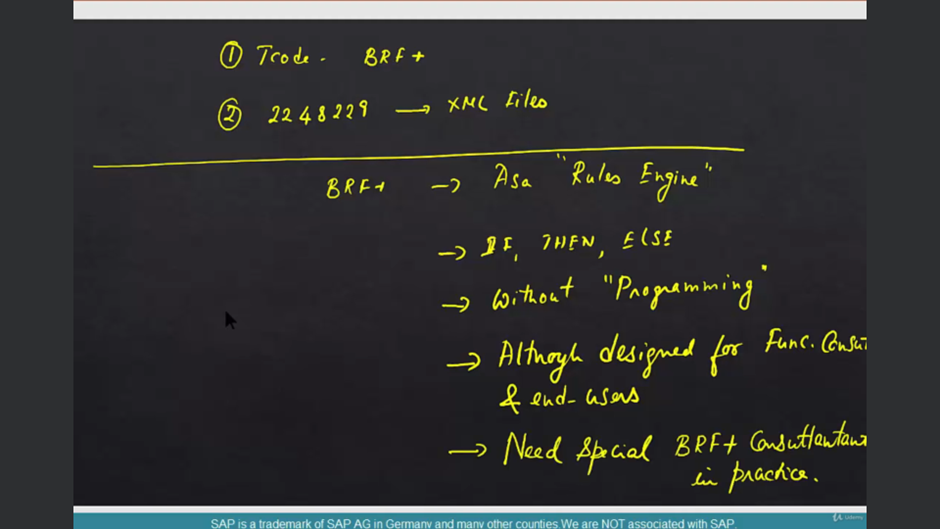 ① Tcode - BRF+
② 2248229 → XML Files
BRF+ → As a "Rules Engine"
→ IF, THEN, ELSE
→ Without "Programming"
→ Although designed for Func. Consu
& end-users
→ Need Special BRF+ Consultant
in practice.
SAP is a trademark of SAP AG in Germany and many other counties.We are NOT associated with SAP.
Udemy